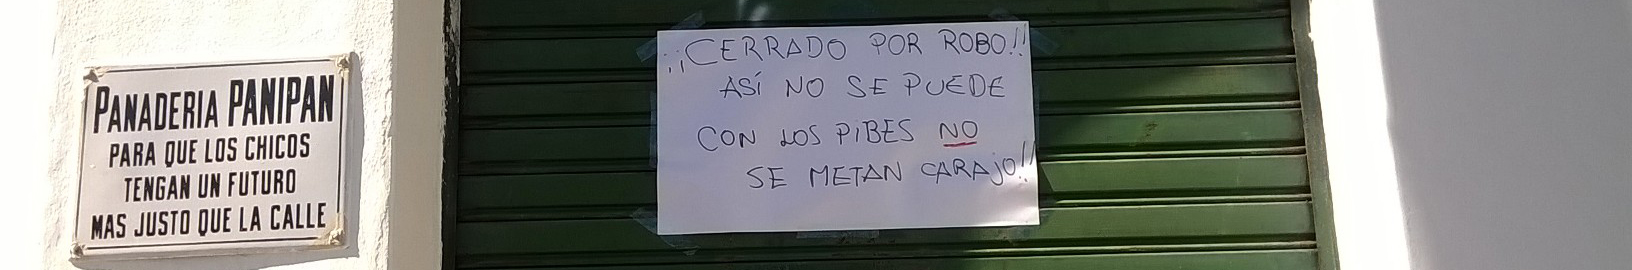 PANADERIA PANIPAN
PARA QUE LOS CHICOS
TENGAN UN FUTURO
MAS JUSTO QUE LA CALLE
¡¡CERRADO POR ROBO!!
ASÍ NO SE PUEDE
CON LOS PIBES NO
SE METAN CARAJO!!